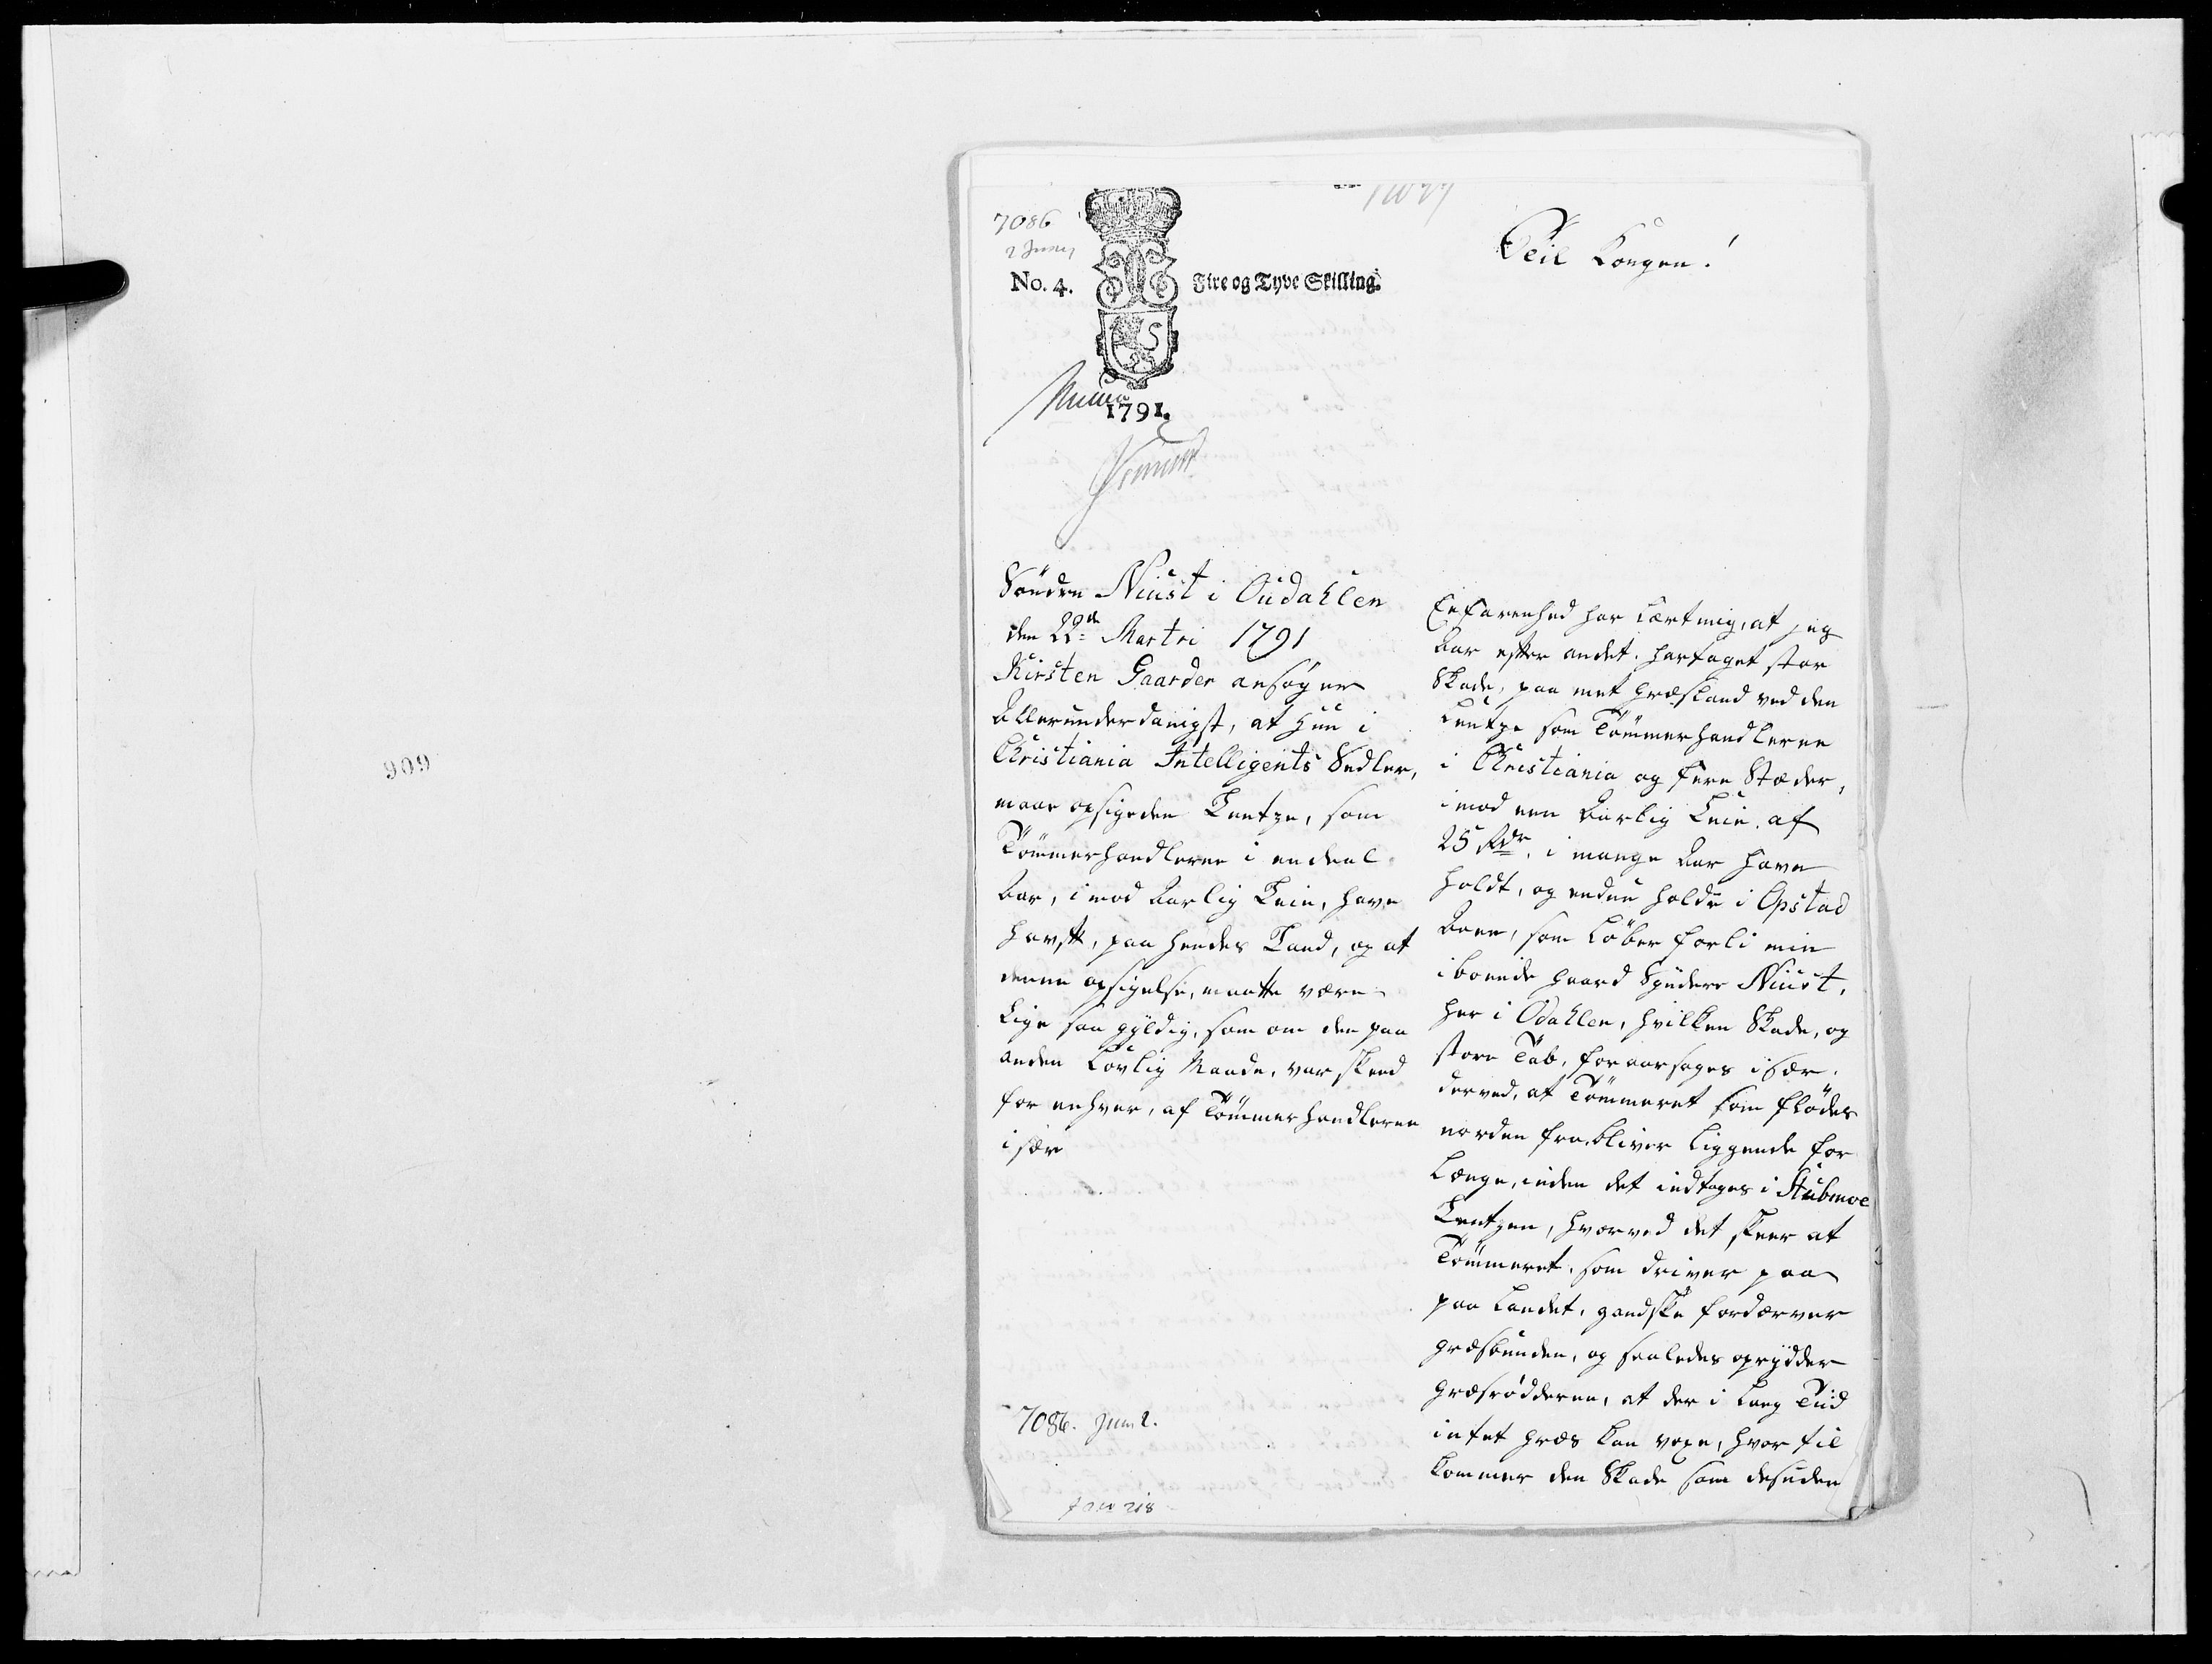 7086
2 Juny
No. 4.
Fire og Tyve Skilling.
1791.
Teil Kongen!
Sönder Niust i Oudahlen
den 22de Martri 1791
Kirsten Gaarder ansøger
Allerunderdanigst, at hun i
Christiania Intelligents Sedler,
maae opsige den Lentze, som
Tömmerhandlerne i en deel
Aar, imod Aarlig Leie, have
havft, paa hendes Land, og at
denne opsigelse, maatte være
Lige saa gyldig, som om den paa
anden Lovlig Maade, var skeed
for enhver, af Tömmerhandlerne
især
7086. Juni 2.
Erfarenhed har Lært mig, at jeg
Aar efter andet har taget stor
Skade, paa met Græsland ved den
Lentze som Tömmerhandlerne
i Christiania og fere Stæder,
imod een Aarlig Leie af
25 Rdr. i mange Aar have
holdt, og endnu holde i Opstad
Aaen, som Löber forbi min
iboende Gaard Syndere Niust,
her i Odahlen, hvilken Skade, og
store Tab, foraarsages især
derved, at Tömmeret som flödes
norden fra, bliver liggende for
Længe, inden det indtages i Stubmoe
Lentzen, hvorved det skeer at
Tömmeret, som driver paa
paa Landet, gandske fordærver
græsbunden, og saaledes oprydder
græsrödderne, at der i Lang Tiid
intet græs kan voxe, hvor til
kommer den Skade som desuden
909